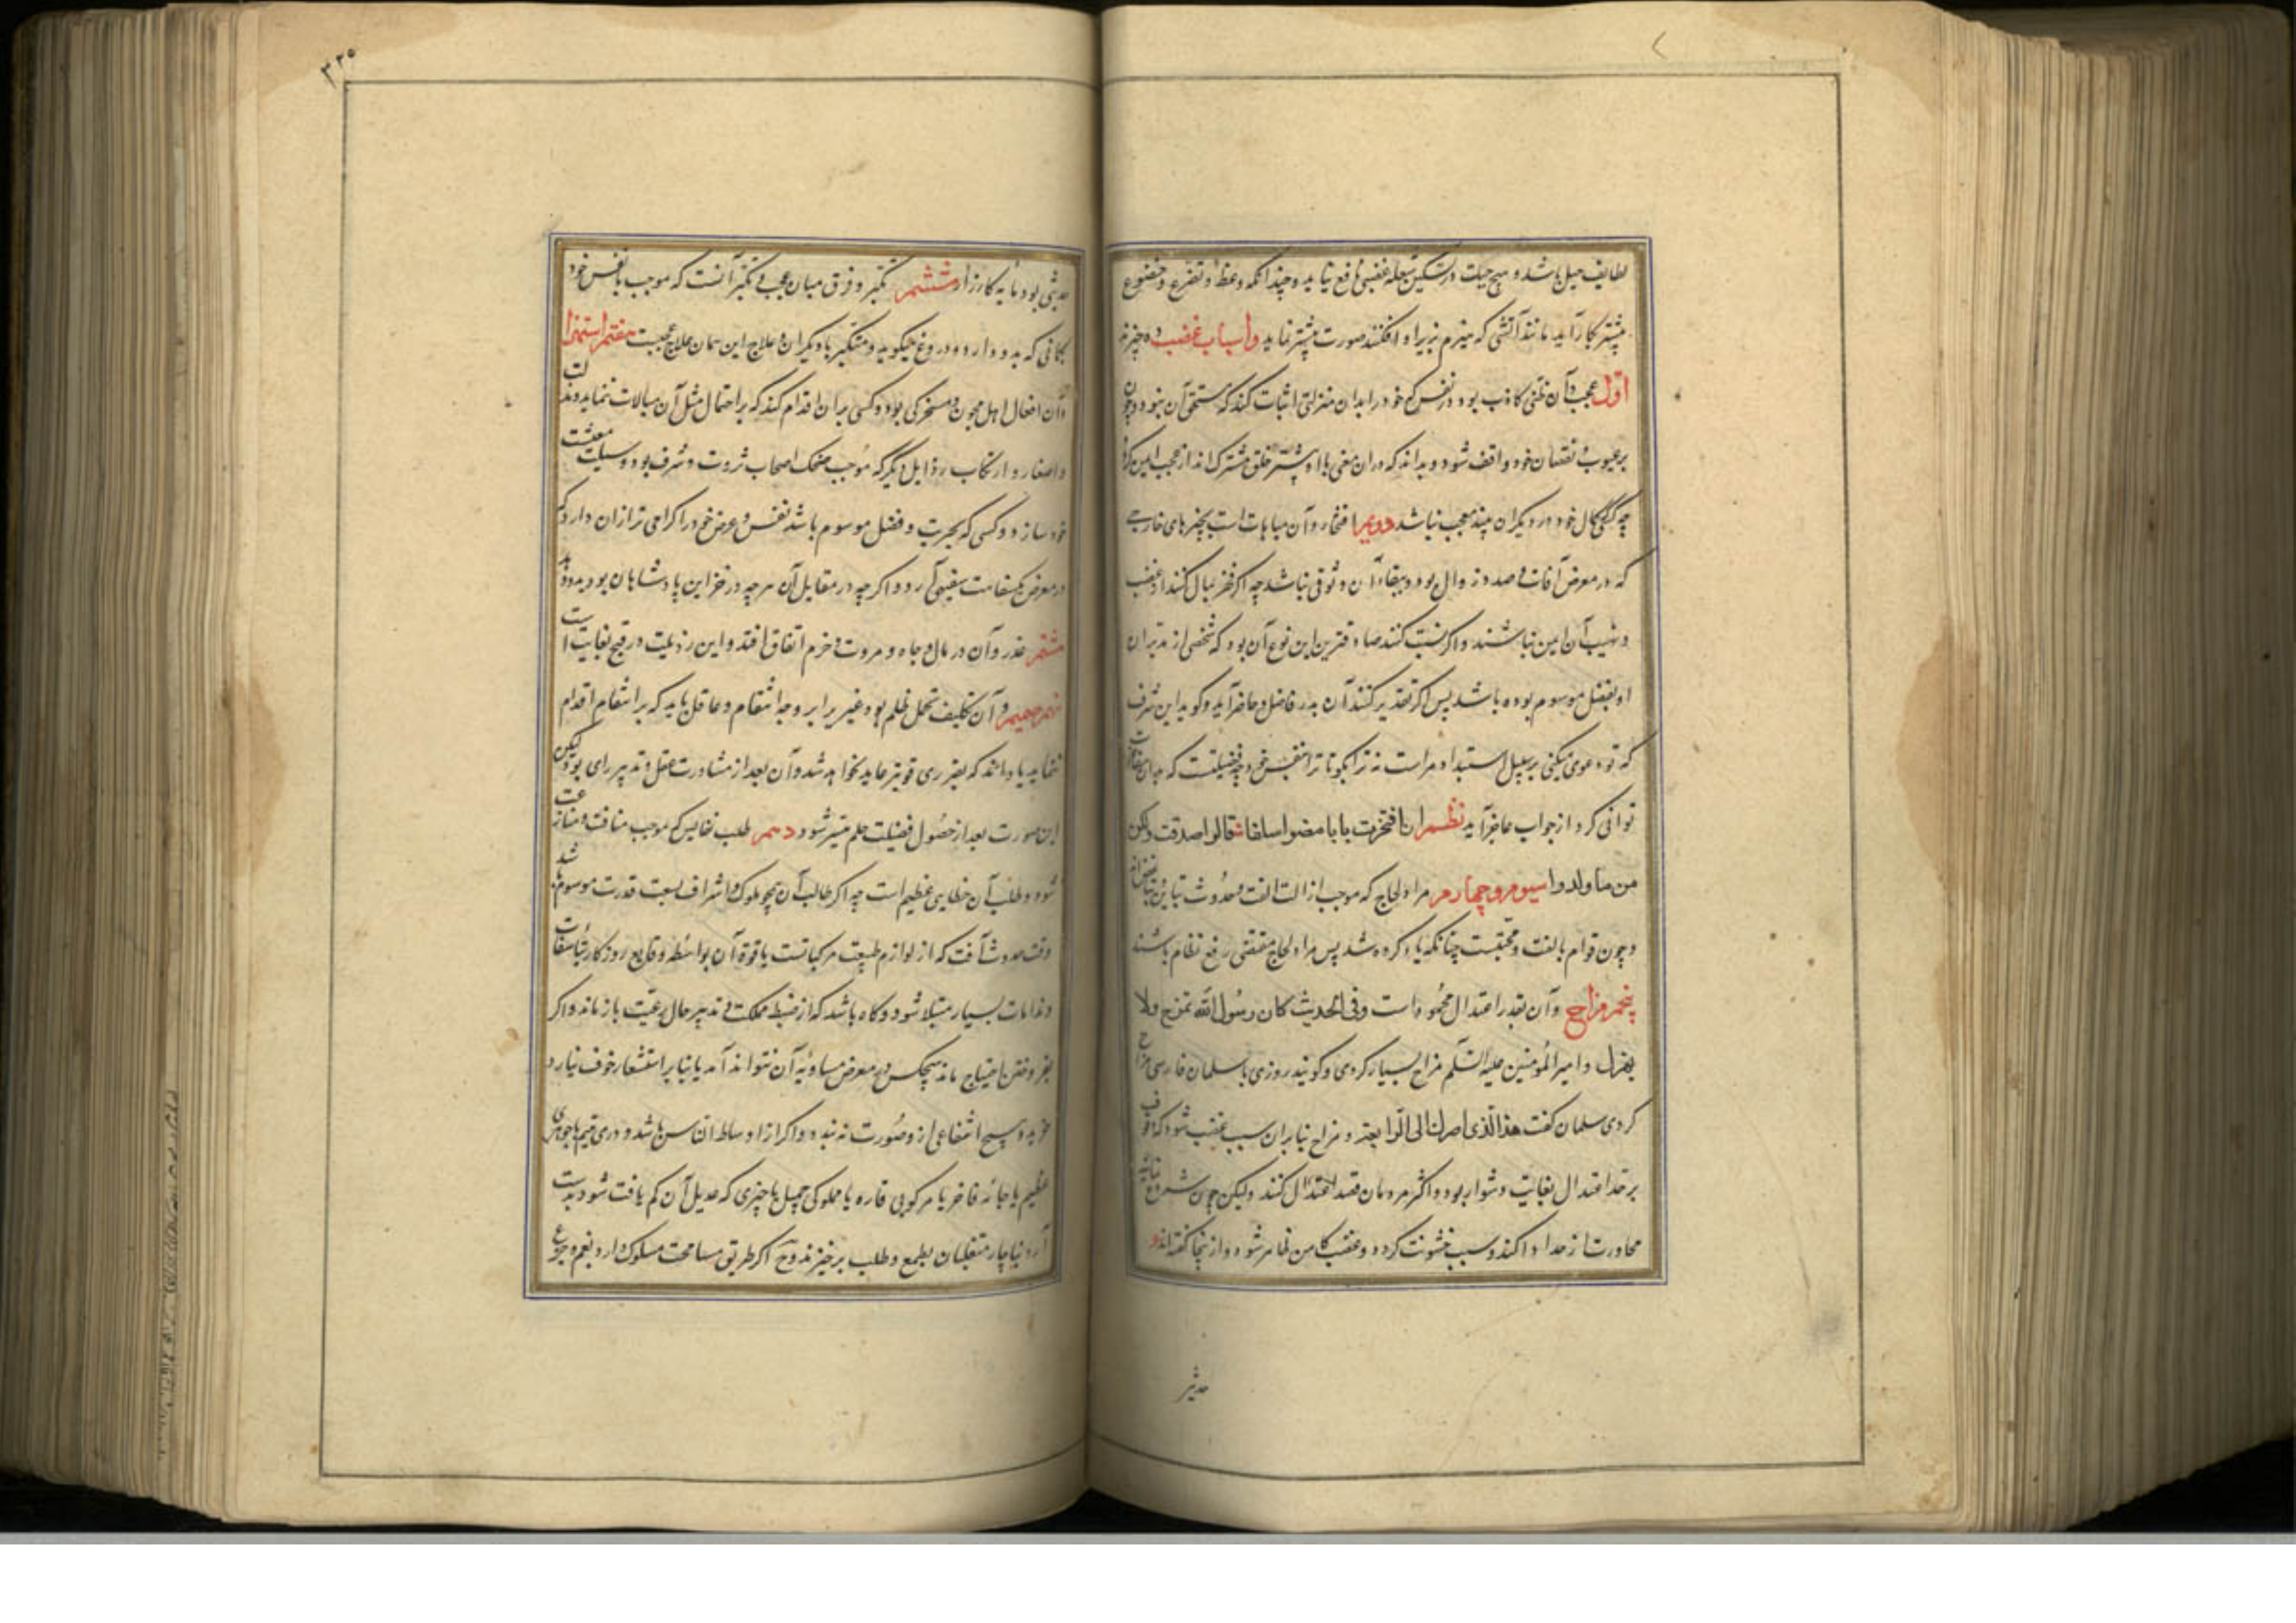 لطایف حیل باشد و هیچ حیلت در تسکین شعلهٔ غضبی نافع نیاید و چندانکه وعظ و تضرع و خضوع
بیشتر بکار آید مانند آتشی که هیزم بزیر او افکنند صورت بیشتر نماید و اسباب غضب ده چیزند
اول عجب و آن ظنی کاذب بود در نفس که خود را بدان منزلتی اثبات کند که مستحق آن نبود و چون
بر عیوب و نقصان خود واقف شود و بداند که در آن معنی با او بیشتر خلق مشترک‌اند از عجب ایمن گردد
چه کسی کمال خود در دیگران بیند معجب نباشد دویم افتخار و آن مباهات است بچیزهای خارجی
که در معرض آفات و صدد زوال بود و ببقاء آن وثوقی نباشد چه اگر فخر بمال کنند از غصب
و نهیب آن ایمن نباشند و اگر بنسب کنند صادقترین این نوع آن بود که شخصی از پدران
او بفضل موسوم بوده باشد پس اگر تقدیر کنند آن پدر فاضل و حاضر آید و گوید این شرف
که تو دعوی میکنی بر سبیل استبداد مراست نه ترا بگو تا ترا بنفس خود چه فضیلتست که بدان مفاخرت
توانی کرد از جواب عاجز آید نظم ان افتخرت بابا مضوا سلفا قالوا صدقت ولکن
من ما ولدوا سیوم و چهارم مراء و لجاج که موجب ازالت الفت و حدوث تباین و تباغض‌اند
و چون قوام بالفت و محبتست چنانکه یاد کرده شد پس مراء و لجاج مقتضی رفع نظام باشند
پنجم مزاح و آن بقدر اعتدال محمود است وفی الحدیث کان رسول الله یمزح ولا
یهزل و امیر المؤمنین علیه السلم مزاح بسیار کردی و گویند روزی با سلمان فارسی مزاح
کردی سلمان گفت هذا الذی اخرک الی الرابعة و مزاح بنابر آن سبب غضب شود که وقوف
بر حد اعتدال بغایت دشوار بود و اکثر مردمان قصد اعتدال کنند ولیکن چون شروع نمایند
مجاورت از حد ادا کند و سبب خشونت گردد و غضب کامن ظاهر شود و از ینجا گفته‌اند
حدیثی
۳۲۵
حدیثی بود مایهٔ کارزار ششم تکبر و فرق میان عجب و تکبر آنست که موجب با نفس خود
بگمانی که بدو دارد دروغ میگوید و متکبر با دیگران و علاج این همان علاج عجبست هفتم استهزا
و آن افعال اهل مجون و مسخرگی بود و کسی بر آن اقدام کند که بر احتمال مثل آن مبالات ننماید و مذلت
و اصغار و ارتکاب رذایل دیگر که موجب ضحک اصحاب ثروت و شرف بود وسیلت معیشت
خود سازد و کسی که بحریت و فضل موسوم باشد نفس و عرض خود را گرامی‌تر از آن دارد که
در معرض یکسفاهت سفیهی آرد و اگرچه در مقابل آن هر چه در خزاین پادشاهان بود بدو دهند
هشتم غدر و آن در مال و جاه و مروت و حرم اتفاق افتد و این رذیلت در قبح بغایت است
نهم ضیم و آن تکلیف تحمل ظلم بود غیر را بر وجه انتقام و عاقل باید که بر انتقام اقدام
ننماید تا داند که بضرری قویتر عاید نخواهد شد و آن بعد از مشاورت عقل و تدبیر رای بود لیکن
این صورت بعد از حصول فضیلت حلم میسر شود دهم طلب نفایس که موجب منافست و منازعت
شود و طلب آن خطایی عظیم است چه اگر طالب آن همچو ملوک و اشراف بسعت قدرت موسوم باشد
وقت حدوث آفت که از لوازم طبیعت مرکباتست یا قوة آن بواسطه وقایع روزگار بتأسفات
و ندامات بسیار مبتلا شود و گاه باشد که از ضبط مملکت و تدبیر حال رعیت باز ماند و اگر
بفر و فتن احتیاج ماند هیچکس در معرض مساومهٔ آن نتواند آمد یا بنابر استشعار خوف نیارد
خرید و هیچ انتفاعی از و صورت نه بندد و اگر از اوساط الناس باشد و دری یتیم یا جوهری
عظیم یا جامهٔ فاخر یا مرکوبی فاره یا مملوکی جمیل یا چیزی که عدیل آن کم یافت شود بدست
آرد ناچار متغلبان بطمع و طلب برخیزند و ح اگر طریق مسامحت مسلوک دارد بغم و جزع